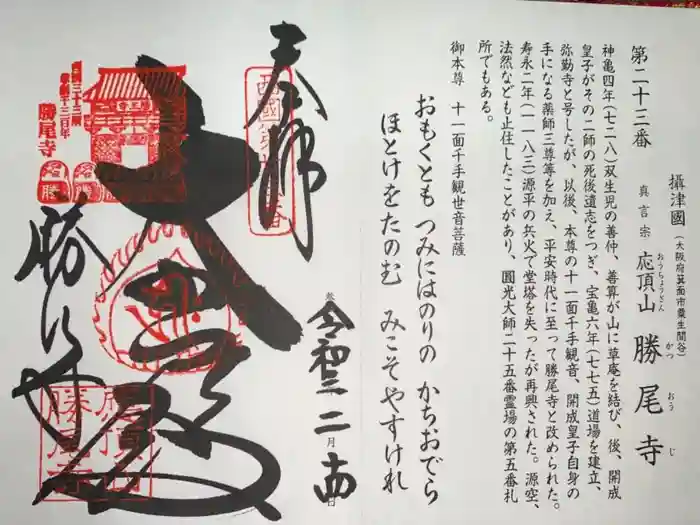 第二十三番
攝津國（大阪府箕面市粟生間谷）
真言宗 応頂山 勝尾寺
おうちょうざん かつおうじ
神亀四年（七二八）双生児の善仲、善算が山に草庵を結び、後、開成
皇子がその二師の死後遺志をつぎ、宝亀六年（七七五）道場を建立、
弥勒寺と号したが、以後、本尊の十一面千手観音、開成皇子自身の
手になる薬師三尊等を加え、平安時代に至って勝尾寺と改められた。
寿永二年（一一八三）源平の兵火で堂塔を失ったが再興された。源空、
法然なども止住したことがあり、圓光大師二十五番霊場の第五番札
所でもある。
御本尊 十一面千手観世音菩薩
おもくとも つみにはのりの かちおでら
ほとけをたのむ みこそやすけれ
奉拝
令和二二月十四日
大悲殿
勝尾寺
勝尾寺
応頂山
勝尾寺